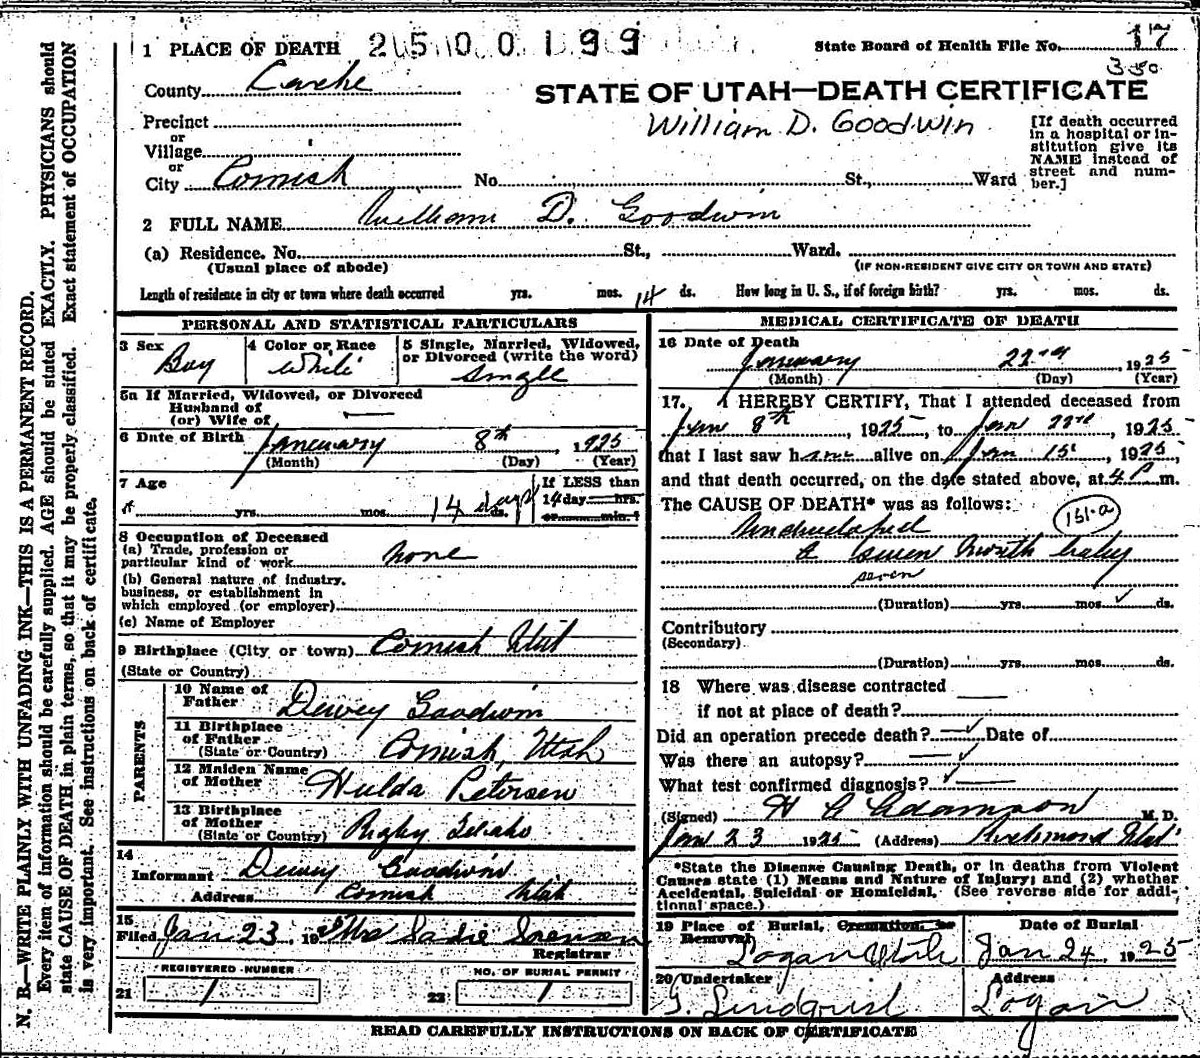 1 PLACE OF DEATH 2 5 0 0 1 9 9 State Board of Health File No. 17
350
County Cache STATE OF UTAH—DEATH CERTIFICATE
William D. Goodwin
Precinct
or
Village
or
City Cornish No. St., Ward
[If death occurred
in a hospital or in-
stitution give its
NAME instead of
street and num-
ber.]
2 FULL NAME William D. Goodwin
(a) Residence. No. St., Ward.
(Usual place of abode) (IF NON-RESIDENT GIVE CITY OR TOWN AND STATE)
Length of residence in city or town where death occurred yrs. mos. 14 ds. How long in U. S., if of foreign birth? yrs. mos. ds.
PERSONAL AND STATISTICAL PARTICULARS
3 Sex Boy
4 Color or Race White
5 Single, Married, Widowed,
or Divorced (write the word)
Single
5a If Married, Widowed, or Divorced
Husband of
(or) Wife of —
6 Date of Birth January 8th, 1925
(Month) (Day) (Year)
7 Age
yrs. mos. 14 days ds.
If LESS than
14 day hrs.
or min.?
8 Occupation of Deceased
(a) Trade, profession or
particular kind of work none
(b) General nature of industry,
business, or establishment in
which employed (or employer)
(c) Name of Employer
9 Birthplace (City or town) Cornish Utah
(State or Country)
PARENTS
10 Name of
Father Dewey Goodwin
11 Birthplace
of Father
(State or Country) Cornish, Utah
12 Maiden Name
of Mother Hulda Petersen
13 Birthplace
of Mother
(State or Country) Rigby Idaho
14
Informant Dewey Goodwin
Address Cornish Utah
15
Filed Jan 23 1925 Mrs Sadie Sorenson
Registrar
REGISTERED NUMBER NO. OF BURIAL PERMIT
21 1 22 1
MEDICAL CERTIFICATE OF DEATH
16 Date of Death
January 22nd, 1925
(Month) (Day) (Year)
17. I HEREBY CERTIFY, That I attended deceased from
Jan 8th, 1925, to Jan 22nd, 1925
that I last saw h alive on Jan 15, 1925,
and that death occurred, on the date stated above, at 4 P m.
The CAUSE OF DEATH* was as follows:
151-a
Undeveloped
A seven month baby
seven
(Duration) yrs. mos. ds.
Contributory
(Secondary)
(Duration) yrs. mos. ds.
18 Where was disease contracted
if not at place of death?
Did an operation precede death? — Date of
Was there an autopsy? —
What test confirmed diagnosis? —
(Signed) H C Adamson M. D.
Jan 23 1925 (Address) Richmond Utah
*State the Disease Causing Death, or in deaths from Violent
Causes state (1) Means and Nature of Injury; and (2) whether
Accidental, Suicidal or Homicidal. (See reverse side for addi-
tional space.)
19 Place of Burial, Cremation, or
Removal Logan Utah
Date of Burial
Jan 24, 1925
20 Undertaker
G. Lindquist
Address
Logan
READ CAREFULLY INSTRUCTIONS ON BACK OF CERTIFICATE
N. B.—WRITE PLAINLY WITH UNFADING INK—THIS IS A PERMANENT RECORD.
Every item of information should be carefully supplied. AGE should be stated EXACTLY. PHYSICIANS should
state CAUSE OF DEATH, in plain terms, so that it may be properly classified. Exact statement of OCCUPATION
is very important. See instructions on back of certificate.